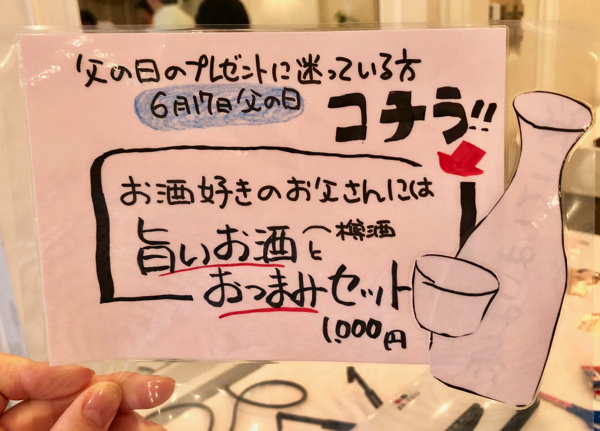 父の日のプレゼントに迷っている方
6月17日父の日
コチラ!!
お酒好きのお父さんには
旨いお酒と
おつまみセット
1,000円